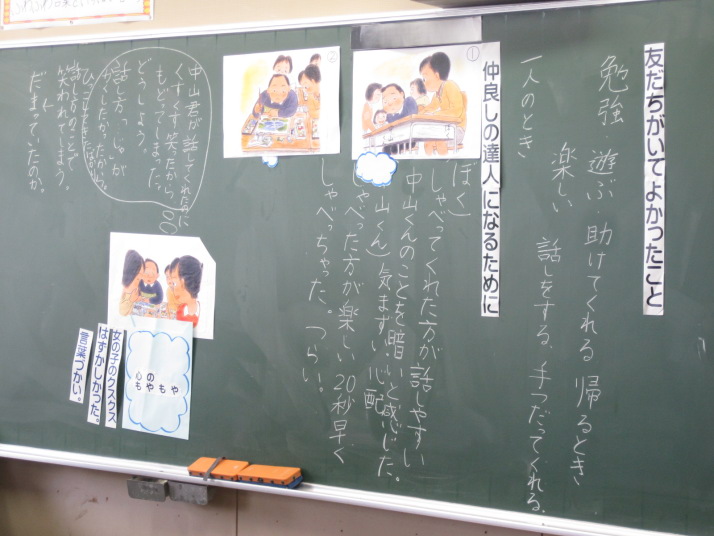 友だちがいてよかったこと
勉強 遊ぶ.助けてくれる 帰るとき
楽しい 話しをする.手つだってくれる.
一人のとき
仲良しの達人になるために
①
ぼく)
しゃべってくれた方が話しやすい
中山くんのことを暗いと感じた。
山くん)気まずい,心配
しゃべった方が楽しい 20秒早く
しゃべっちゃった。つらい!
②
中山君が話してくれたのに
くすくす笑たから
もどってしまった。
どうしよう。
話し方
話し方のことで
笑われてしまう。
だまっていたのか。
心の
もやもや
女の子のクスクス
はずかしかった。
言葉づかい。